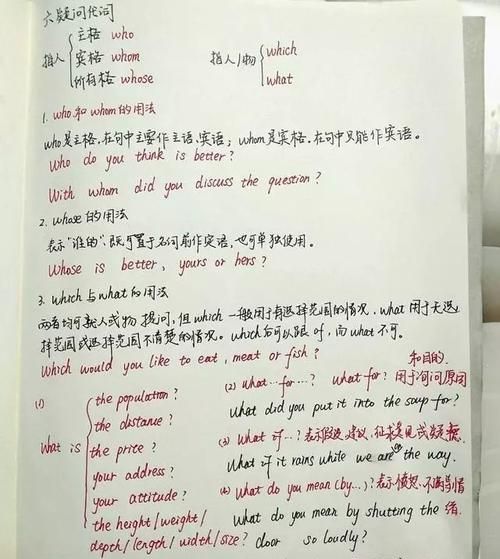 六疑问代词
指人 主格 who
宾格 whom
所有格 whose
指人/物 which
what
1. who 和 whom的用法
who是主格,在句中主要作主语,宾语; whom是宾格,在句中只能作宾语。
Who do you think is better?
With whom did you discuss the question?
2. whose 的用法
表示"谁的"既可置于名词前作宾语,也可单独使用。
Whose is better, yours or hers?
3. which 与 what 的用法
两者均可就人或物提问,但 which 一般用于有选择范围的情况, what 用于无选
择范围或选择范围不清楚的情况。which后可以跟of,而what不可。
Which would you like to eat, meat or fish?
(1) What is
the population?
the distance?
the price?
your address?
your attitude?
the height/weight/
depth/length/width/size?
(2) what...for...? what for? 用于询问原因
和目的.
What did you put it into the soup for?
(3) What if...? 表示假设,建议,征求意见或
What if it rains while we are on the way.
(4) What do you mean (by...)? 表示愤怒、不满等情
绪.
What do you mean by shutting the
door so loudly?